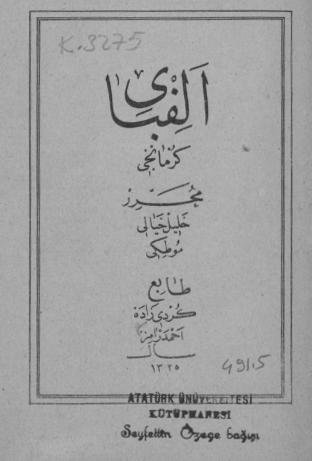 K.3275
اَلِفْبَایِ
كرمانجی
محرر
خلیل خیالی
موطكی
طابع
كردی زاده
احمد رامز
سال
١٣٢٥
491.5
ATATÜRK ÜNÜVERSİTESİ
KÜTÜPHANESİ
Seyfettin Özege bağışı